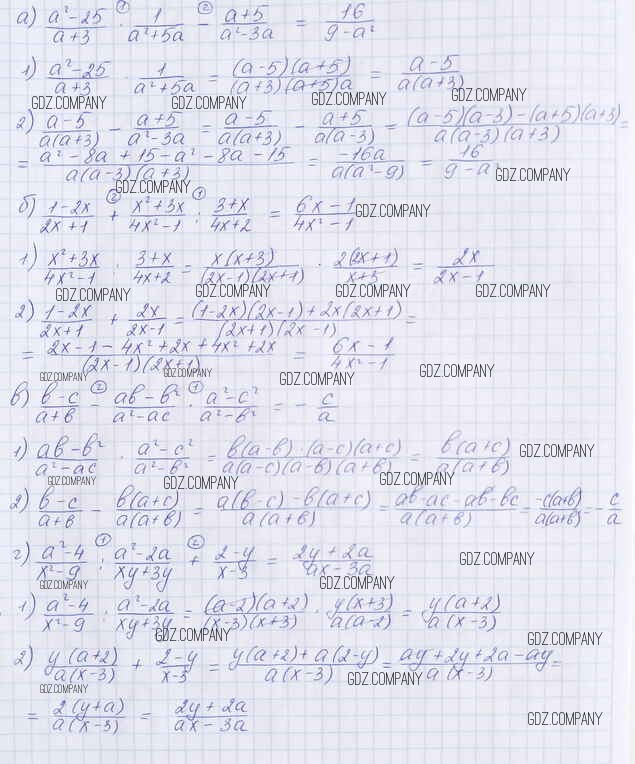 а) (a²-25)/(a+3) ① · 1/(a²+5a) ② - (a+5)/(a²-3a) = 16/(9-a²)
1) (a²-25)/(a+3) · 1/(a²+5a) = (a-5)(a+5)/(a+3)(a+5)a = (a-5)/a(a+3)
GDZ.COMPANY GDZ.COMPANY GDZ.COMPANY GDZ.COMPANY
2) (a-5)/a(a+3) - (a+5)/(a²-3a) = (a-5)/a(a+3) - (a+5)/a(a-3) = ((a-5)(a-3)-(a+5)(a+3))/a(a-3)(a+3) =
= (a²-8a+15-a²-8a-15)/a(a-3)(a+3) = -16a/a(a²-9) = 16/(9-a²) GDZ.COMPANY
GDZ.COMPANY
б) (1-2x)/(2x+1) ② + (x²+3x)/(4x²-1) ① : (3+x)/(4x+2) = (6x-1)/(4x²-1) GDZ.COMPANY
1) (x²+3x)/(4x²-1) : (3+x)/(4x+2) = x(x+3)/(2x-1)(2x+1) · 2(2x+1)/(x+3) = 2x/(2x-1)
GDZ.COMPANY GDZ.COMPANY GDZ.COMPANY GDZ.COMPANY
2) (1-2x)/(2x+1) + 2x/(2x-1) = ((1-2x)(2x-1)+2x(2x+1))/(2x+1)(2x-1) =
= (2x-1-4x²+2x+4x²+2x)/(2x-1)(2x+1) = (6x-1)/(4x²-1)
GDZ.COMPANY GDZ.COMPANY GDZ.COMPANY GDZ.COMPANY
в) (в-c)/(a+в) - ② (aв-в²)/(a²-ac) ① · (a²-c²)/(a²-в²) = - c/a
1) (aв-в²)/(a²-ac) · (a²-c²)/(a²-в²) = в(a-в)·(a-c)(a+c)/a(a-c)(a-в)(a+в) = в(a+c)/a(a+в) GDZ.COMPANY
GDZ.COMPANY GDZ.COMPANY GDZ.COMPANY
2) (в-c)/(a+в) - в(a+c)/a(a+в) = (a(в-c)-в(a+c))/a(a+в) = (aв-ac-aв-вc)/a(a+в) = -c(a+в)/a(a+в) = - c/a
г) (a²-4)/(x²-9) ① : (a²-2a)/(xy+3y) ② + (2-y)/(x-3) = (2y+2a)/(ax-3a) GDZ.COMPANY
GDZ.COMPANY GDZ.COMPANY
1) (a²-4)/(x²-9) : (a²-2a)/(xy+3y) = (a-2)(a+2)/(x-3)(x+3) · y(x+3)/a(a-2) = y(a+2)/a(x-3)
GDZ.COMPANY GDZ.COMPANY
2) y(a+2)/a(x-3) + (2-y)/(x-3) = (y(a+2)+a(2-y))/a(x-3) = (ay+2y+2a-ay)/a(x-3) =
GDZ.COMPANY GDZ.COMPANY
= 2(y+a)/a(x-3) = (2y+2a)/(ax-3a)
GDZ.COMPANY